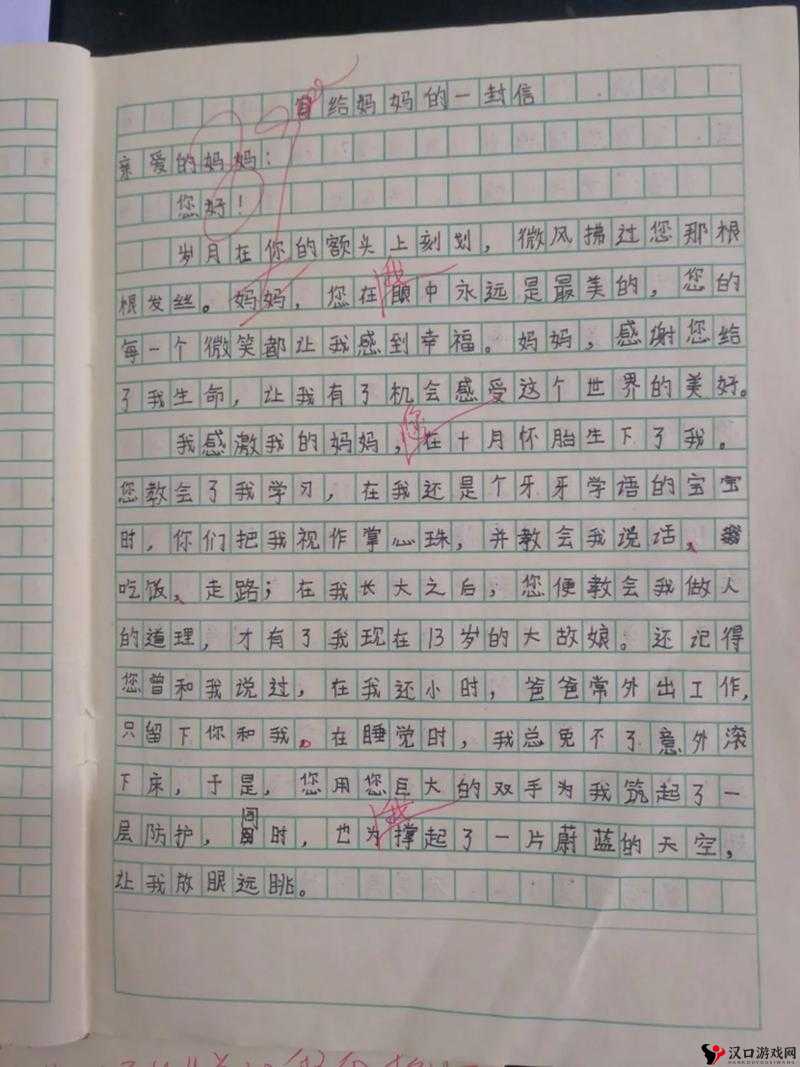 给妈妈的一封信
亲爱的妈妈：
您好！
岁月在你的额头上刻划，微风拂过您那根
根发丝。妈妈，您在我眼中永远是最美的，您的
每一个微笑都让我感到幸福。妈妈，感谢您给
了我生命，让我有了机会感受这个世界的美好。
我感激我的妈妈，您在十月怀胎生下了我。
您教会了我学习，在我还是个牙牙学语的宝宝
时，你们把我视作掌心珠，并教会我说话、
吃饭、走路；在我长大之后，您便教会我做人
的道理，才有了我现在13岁的大故娘。还记得
您曾和我说过，在我还小时，爸爸常外出工作，
只留下你和我。在睡觉时，我总免不了意外滚
下床，于是，您用您巨大的双手为我筑起了一
层防护，同时，也为我撑起了一片蔚蓝的天空，
让我放眼远眺。
汉口游戏网
HANKOUYOUXIWANG